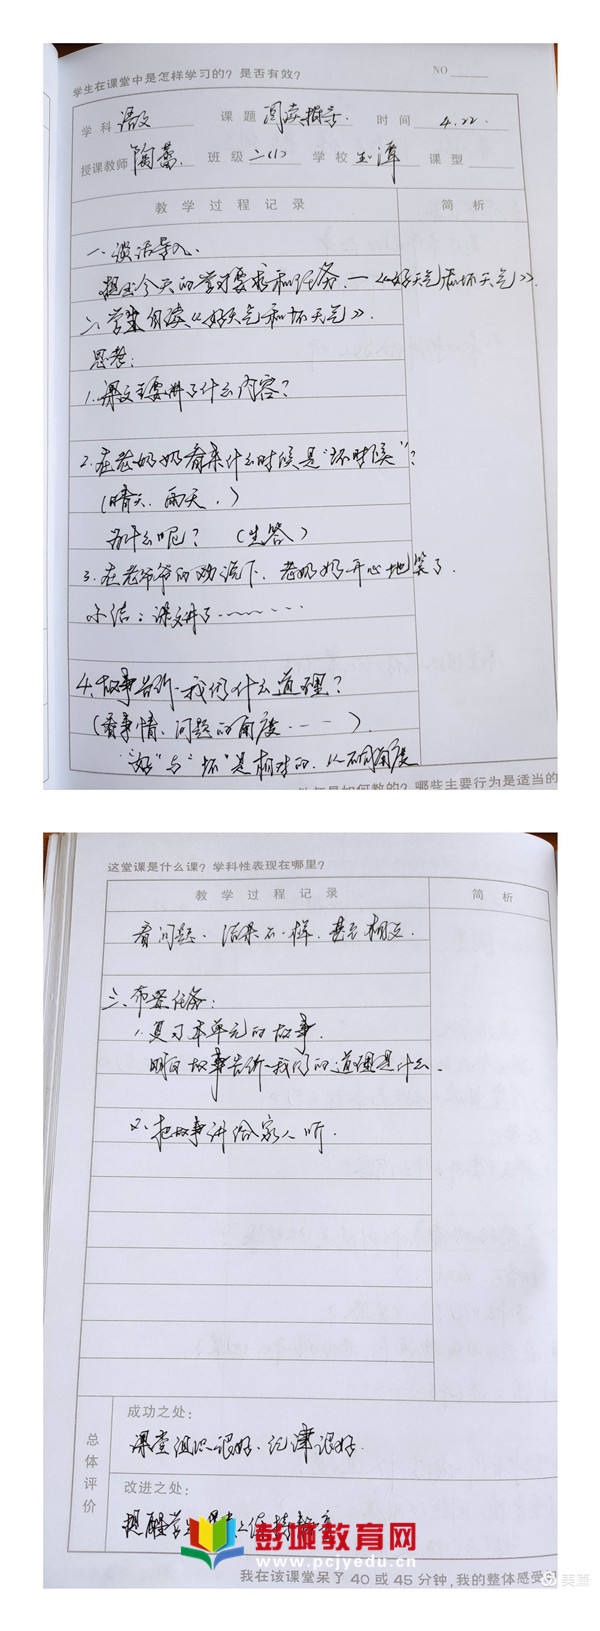 学生在课堂中是怎样学习的？是否有效？ NO
学科 语文 课题 阅读指导. 时间 4.22.
授课教师 陶蕾. 班级 二(1) 学校 玉潭 课型
教学过程记录 简析
一、谈话导入.
提出今天的学习要求和任务.—《好天气和坏天气》.
二、学生自读《好天气和坏天气》.
思考:
1.课文主要讲了什么内容?
2.在老奶奶看来什么时候是“坏时候”?
(晴天、雨天.)
为什么呢? (生答)
3.在老爷爷的劝说下.老奶奶开心地笑了.
小结:课文讲了……
4.故事告诉我们什么道理?
(看事情、问题的角度……).
“好”与“坏”是相对的.从不同角度
是如何教的？哪些主要行为是适当的
这堂课是什么课？学科性表现在哪里？
教学过程记录 简析
看问题.结果不一样.甚至相反.
三、布置任务:
1.复习本单元的故事.
明白故事告诉我们的道理是什么.
2.把故事讲给家人听.
总体评价
成功之处：
课堂组织很好.纪律很好.
改进之处：
提醒学生
彭城教育网
www.pcjyedu.cn
我在该课堂呆了 40 或 45 分钟，我的整体感受
美篇